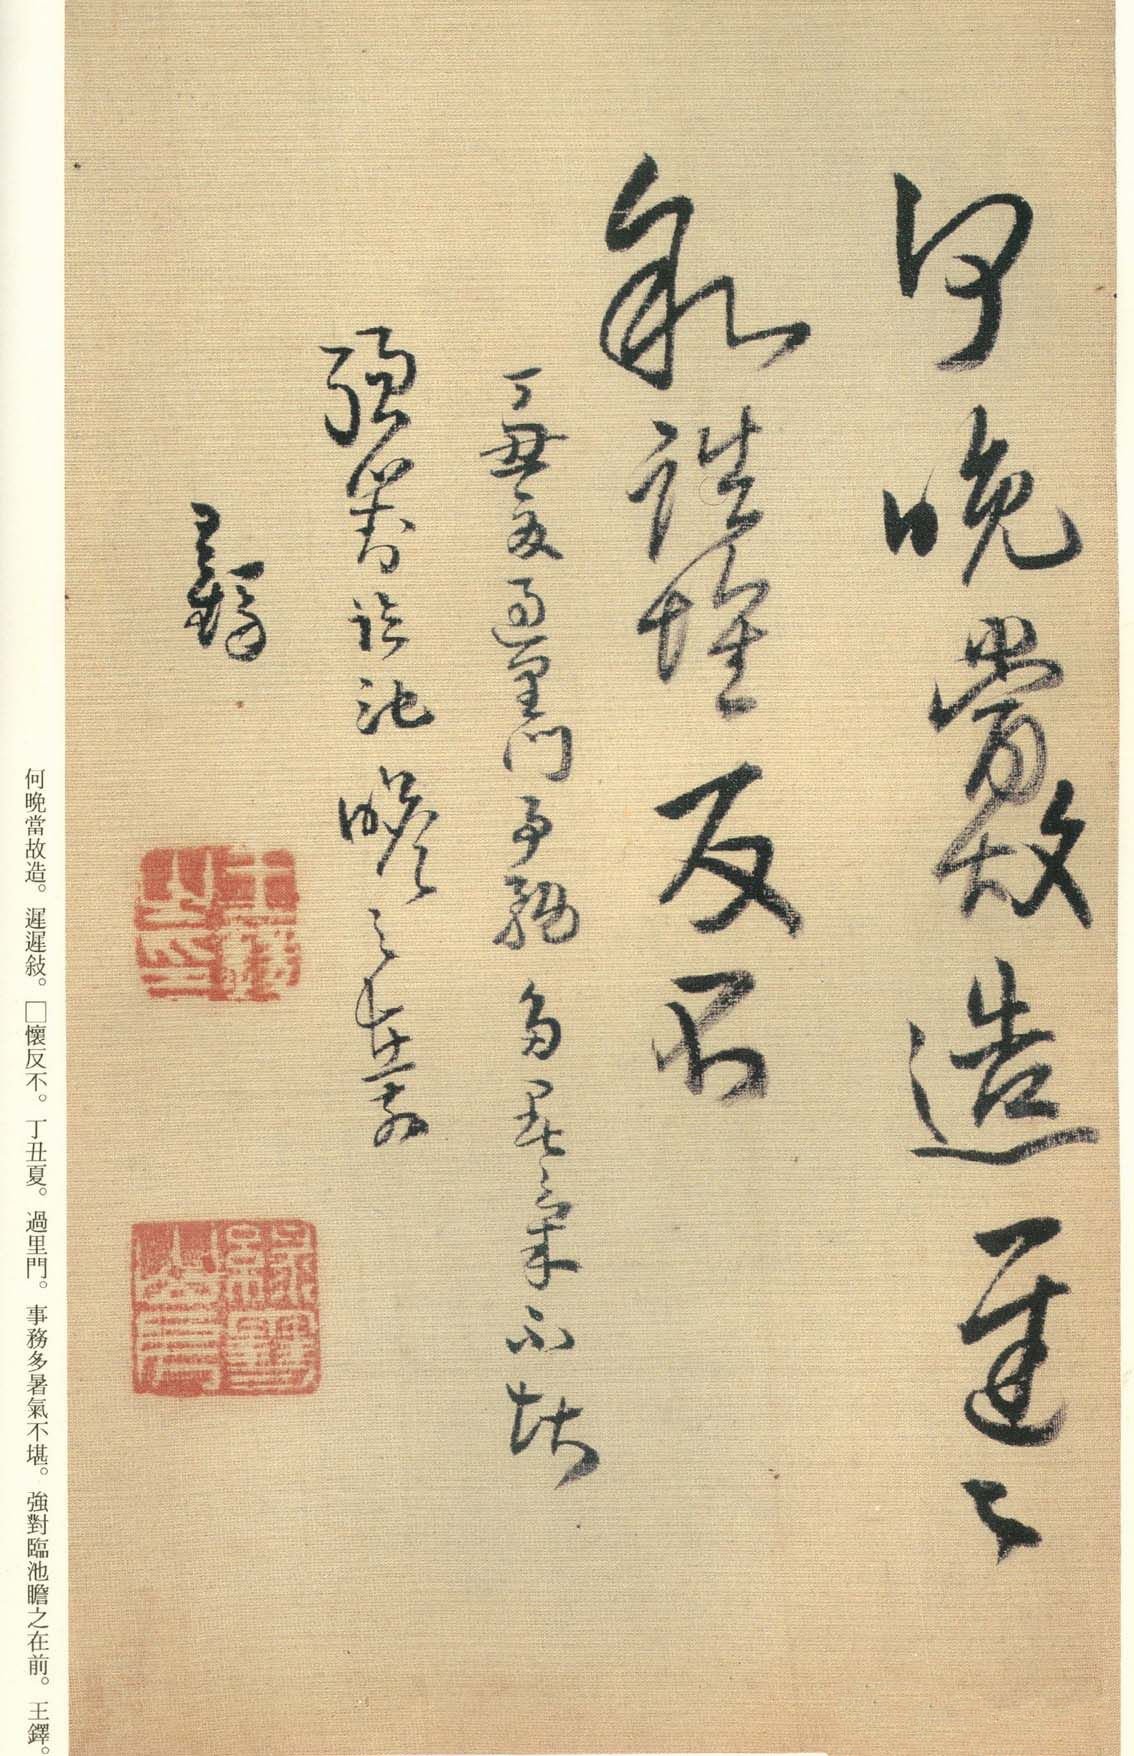 何晚當故造遲〻
敍
懷反不
丁丑夏過里門事務多暑氣不堪
強對臨池瞻之在前
王鐸
王鐸之印
何晚當故造。遲遲敍。□懷反不。丁丑夏。過里門。事務多暑氣不堪。強對臨池瞻之在前。王鐸。